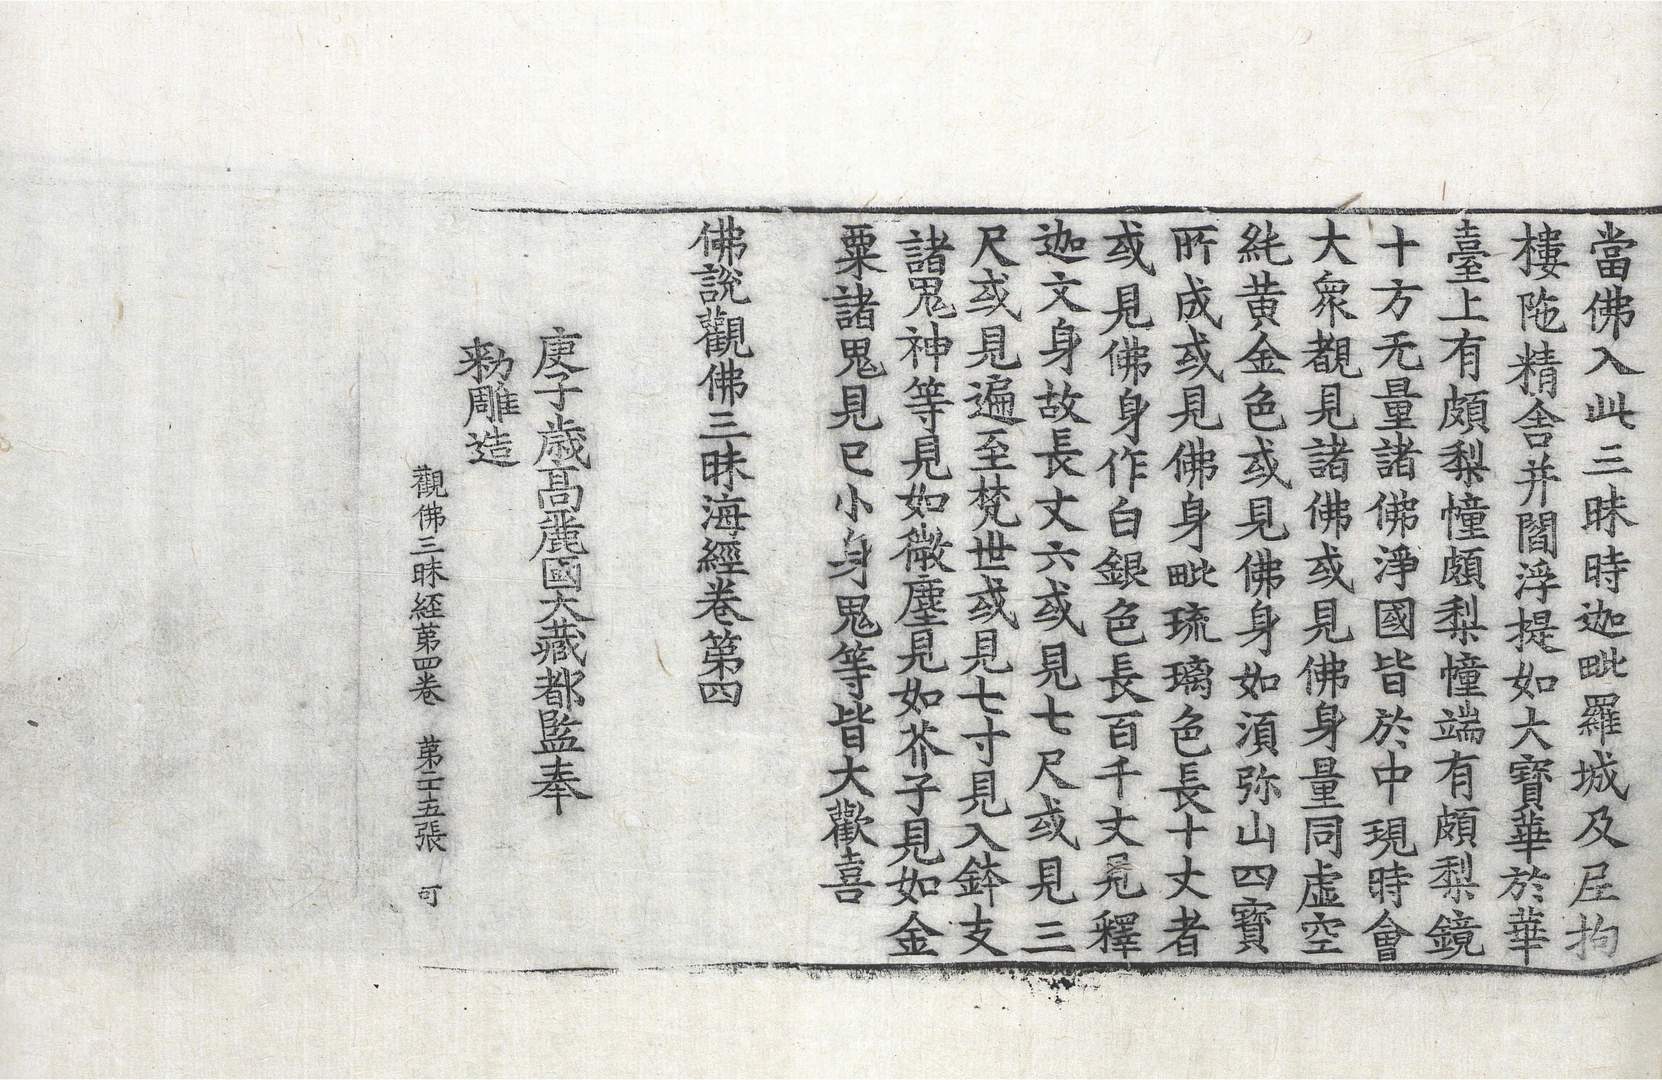 當佛入此三昧時迦毗羅城及尼拘
樓陁精舍并閻浮提如大寶華於華
臺上有頗梨幢頗梨幢端有頗梨鏡
十方无量諸佛淨國皆於中現時會
大衆覩見諸佛或見佛身量同虛空
純黃金色或見佛身如須弥山四寶
所成或見佛身毗琉璃色長十丈者
或見佛身作白銀色長百千丈見釋
迦文身故長丈六或見七尺或見三
尺或見遍至梵世或見七寸見入鉢支
諸鬼神等見如微塵見如芥子見如金
粟諸鬼見已小身鬼等皆大歡喜
佛說觀佛三昧海經卷第四
庚子歲高麗國大藏都監奉
勑雕造
觀佛三昧経第四卷 第二十五張 可